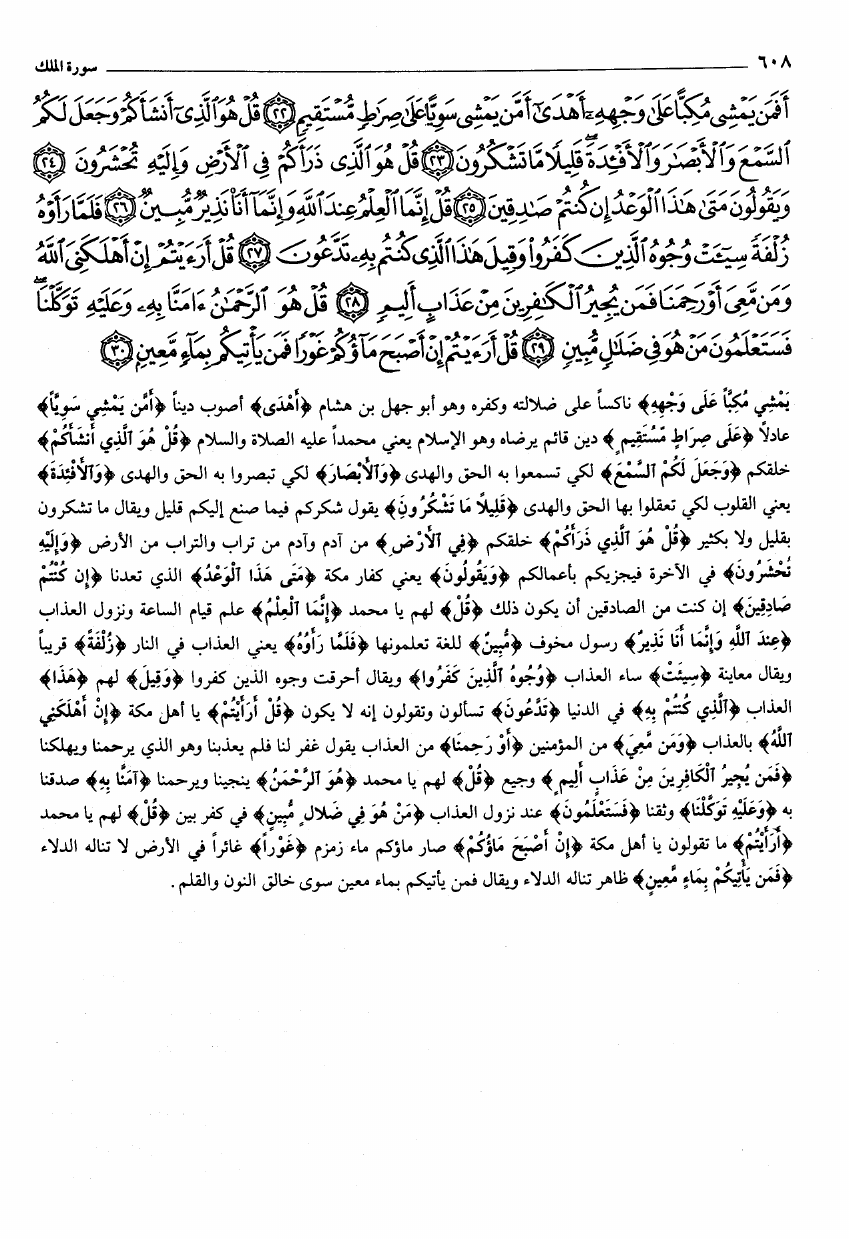 ٦٠٨ سورة الملك
أَفَمَن يَمْشِى مُكِبًّا عَلَىٰ وَجْهِهِۦٓ أَهْدَىٰٓ أَمَّن يَمْشِى سَوِيًّا عَلَىٰ صِرَٰطٍ مُّسْتَقِيمٍ ﴿٢٢﴾ قُلْ هُوَ ٱلَّذِىٓ أَنشَأَكُمْ وَجَعَلَ لَكُمُ
ٱلسَّمْعَ وَٱلْأَبْصَٰرَ وَٱلْأَفْـِٔدَةَ ۖ قَلِيلًا مَّا تَشْكُرُونَ ﴿٢٣﴾ قُلْ هُوَ ٱلَّذِى ذَرَأَكُمْ فِى ٱلْأَرْضِ وَإِلَيْهِ تُحْشَرُونَ ﴿٢٤﴾
وَيَقُولُونَ مَتَىٰ هَٰذَا ٱلْوَعْدُ إِن كُنتُمْ صَٰدِقِينَ ﴿٢٥﴾ قُلْ إِنَّمَا ٱلْعِلْمُ عِندَ ٱللَّهِ وَإِنَّمَآ أَنَا۠ نَذِيرٌ مُّبِينٌ ﴿٢٦﴾ فَلَمَّا رَأَوْهُ
زُلْفَةً سِيٓـَٔتْ وُجُوهُ ٱلَّذِينَ كَفَرُوا۟ وَقِيلَ هَٰذَا ٱلَّذِى كُنتُم بِهِۦ تَدَّعُونَ ﴿٢٧﴾ قُلْ أَرَءَيْتُمْ إِنْ أَهْلَكَنِىَ ٱللَّهُ
وَمَن مَّعِىَ أَوْ رَحِمَنَا فَمَن يُجِيرُ ٱلْكَٰفِرِينَ مِنْ عَذَابٍ أَلِيمٍ ﴿٢٨﴾ قُلْ هُوَ ٱلرَّحْمَٰنُ ءَامَنَّا بِهِۦ وَعَلَيْهِ تَوَكَّلْنَا ۖ
فَسَتَعْلَمُونَ مَنْ هُوَ فِى ضَلَٰلٍ مُّبِينٍ ﴿٢٩﴾ قُلْ أَرَءَيْتُمْ إِنْ أَصْبَحَ مَآؤُكُمْ غَوْرًا فَمَن يَأْتِيكُم بِمَآءٍ مَّعِينٍۭ ﴿٣٠﴾
يَمْشِي مُكِبًّا عَلَى وَجْهِهِ﴾ ناكساً على ضلالته وكفره وهو أبو جهل بن هشام ﴿أَهْدَى﴾ أصوب ديناً ﴿أَمَّن يَمْشِي سَوِيًّا﴾
عادلاً ﴿عَلَى صِرَاطٍ مُّسْتَقِيمٍ﴾ دين قائم يرضاه وهو الإسلام يعني محمداً عليه الصلاة والسلام ﴿قُلْ هُوَ ٱلَّذِي أَنشَأَكُمْ﴾
خلقكم ﴿وَجَعَلَ لَكُمُ ٱلسَّمْعَ﴾ لكي تسمعوا به الحق والهدى ﴿وَٱلْأَبْصَارَ﴾ لكي تبصروا به الحق والهدى ﴿وَٱلْأَفْئِدَةَ﴾
يعني القلوب لكي تعقلوا بها الحق والهدى ﴿قَلِيلًا مَا تَشْكُرُونَ﴾ يقول شكركم فيما صنع إليكم قليل ويقال ما تشكرون
بقليل ولا بكثير ﴿قُلْ هُوَ ٱلَّذِي ذَرَأَكُمْ﴾ خلقكم ﴿فِي ٱلْأَرْضِ﴾ من آدم وآدم من تراب والتراب من الأرض ﴿وَإِلَيْهِ
تُحْشَرُونَ﴾ في الآخرة فيجزيكم بأعمالكم ﴿وَيَقُولُونَ﴾ يعني كفار مكة ﴿مَتَى هَذَا ٱلْوَعْدُ﴾ الذي تعدنا ﴿إِن كُنْتُمْ
صَادِقِينَ﴾ إن كنت من الصادقين أن يكون ذلك ﴿قُلْ﴾ لهم يا محمد ﴿إِنَّمَا ٱلْعِلْمُ﴾ علم قيام الساعة ونزول العذاب
﴿عِنْدَ ٱللَّهِ وَإِنَّمَا أَنَا نَذِيرٌ﴾ رسول مخوف ﴿مُّبِينٌ﴾ للغة تعلمونها ﴿فَلَمَّا رَأَوْهُ﴾ يعني العذاب في النار ﴿زُلْفَةً﴾ قريباً
ويقال معاينة ﴿سِيئَتْ﴾ ساء العذاب ﴿وُجُوهُ ٱلَّذِينَ كَفَرُوا﴾ ويقال أحرقت وجوه الذين كفروا ﴿وَقِيلَ﴾ لهم ﴿هَذَا﴾
العذاب ﴿ٱلَّذِي كُنْتُمْ بِهِ﴾ في الدنيا ﴿تَدَّعُونَ﴾ تسألون وتقولون إنه لا يكون ﴿قُلْ أَرَأَيْتُمْ﴾ يا أهل مكة ﴿إِنْ أَهْلَكَنِي
ٱللَّهُ﴾ بالعذاب ﴿وَمَن مَّعِيَ﴾ من المؤمنين ﴿أَوْ رَحِمَنَا﴾ من العذاب يقول غفر لنا فلم يعذبنا وهو الذي يرحمنا ويهلكنا
﴿فَمَن يُجِيرُ ٱلْكَافِرِينَ مِنْ عَذَابٍ أَلِيمٍ﴾ وجيع ﴿قُلْ﴾ لهم يا محمد ﴿هُوَ ٱلرَّحْمَنُ﴾ ينجينا ويرحمنا ﴿آمَنَّا بِهِ﴾ صدقنا
به ﴿وَعَلَيْهِ تَوَكَّلْنَا﴾ وثقنا ﴿فَسَتَعْلَمُونَ﴾ عند نزول العذاب ﴿مَنْ هُوَ فِي ضَلَالٍ مُّبِينٍ﴾ في كفر بين ﴿قُلْ﴾ لهم يا محمد
﴿أَرَأَيْتُمْ﴾ ما تقولون يا أهل مكة ﴿إِنْ أَصْبَحَ مَاؤُكُمْ﴾ صار ماؤكم ماء زمزم ﴿غَوْراً﴾ غائراً في الأرض لا تناله الدلاء
﴿فَمَن يَأْتِيكُمْ بِمَاءٍ مَّعِينٍ﴾ ظاهر تناله الدلاء ويقال فمن يأتيكم بماء معين سوى خالق النون والقلم.